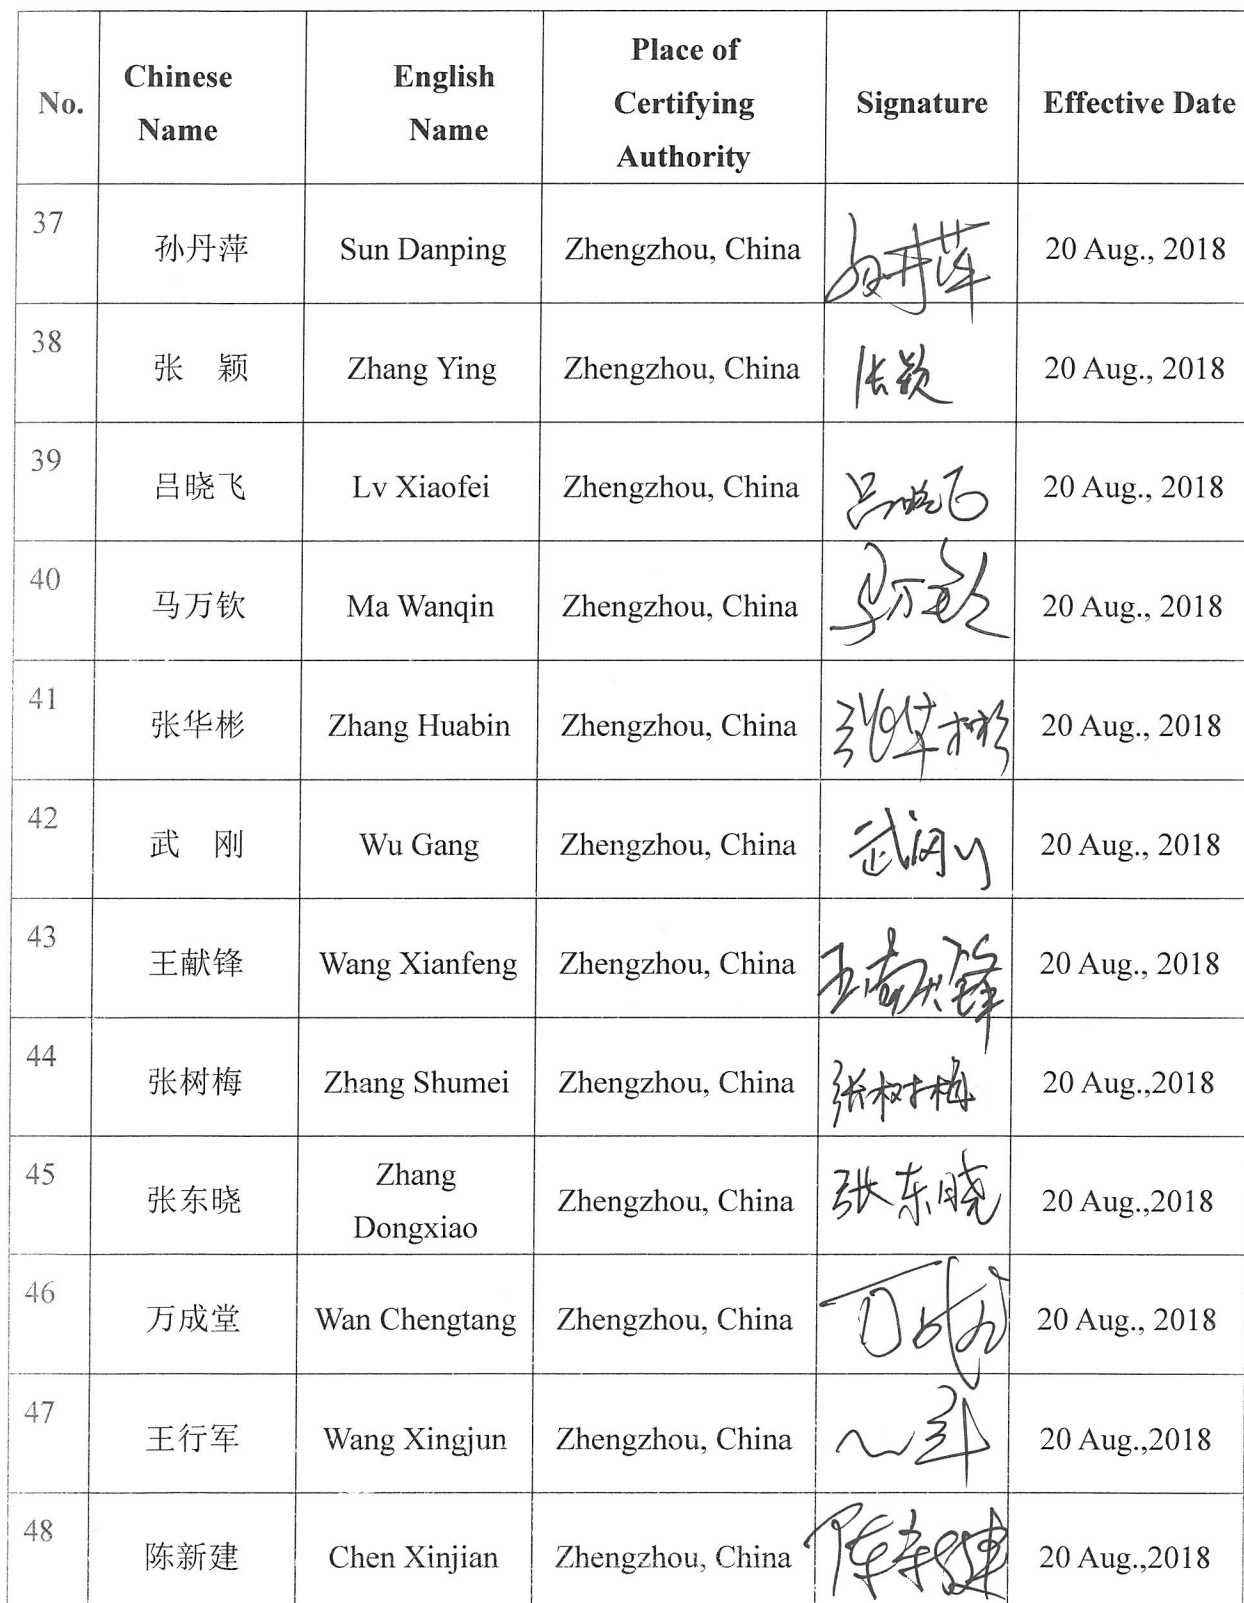 No. Chinese Name English Name Place of Certifying Authority Signature Effective Date
37 孙丹萍 Sun Danping Zhengzhou, China 孙丹萍 20 Aug., 2018
38 张 颖 Zhang Ying Zhengzhou, China 张颖 20 Aug., 2018
39 吕晓飞 Lv Xiaofei Zhengzhou, China 吕晓飞 20 Aug., 2018
40 马万钦 Ma Wanqin Zhengzhou, China 马万钦 20 Aug., 2018
41 张华彬 Zhang Huabin Zhengzhou, China 张华彬 20 Aug., 2018
42 武 刚 Wu Gang Zhengzhou, China 武刚 20 Aug., 2018
43 王献锋 Wang Xianfeng Zhengzhou, China 王献锋 20 Aug., 2018
44 张树梅 Zhang Shumei Zhengzhou, China 张树梅 20 Aug.,2018
45 张东晓 Zhang Dongxiao Zhengzhou, China 张东晓 20 Aug.,2018
46 万成堂 Wan Chengtang Zhengzhou, China 20 Aug., 2018
47 王行军 Wang Xingjun Zhengzhou, China 20 Aug.,2018
48 陈新建 Chen Xinjian Zhengzhou, China 陈新建 20 Aug.,2018